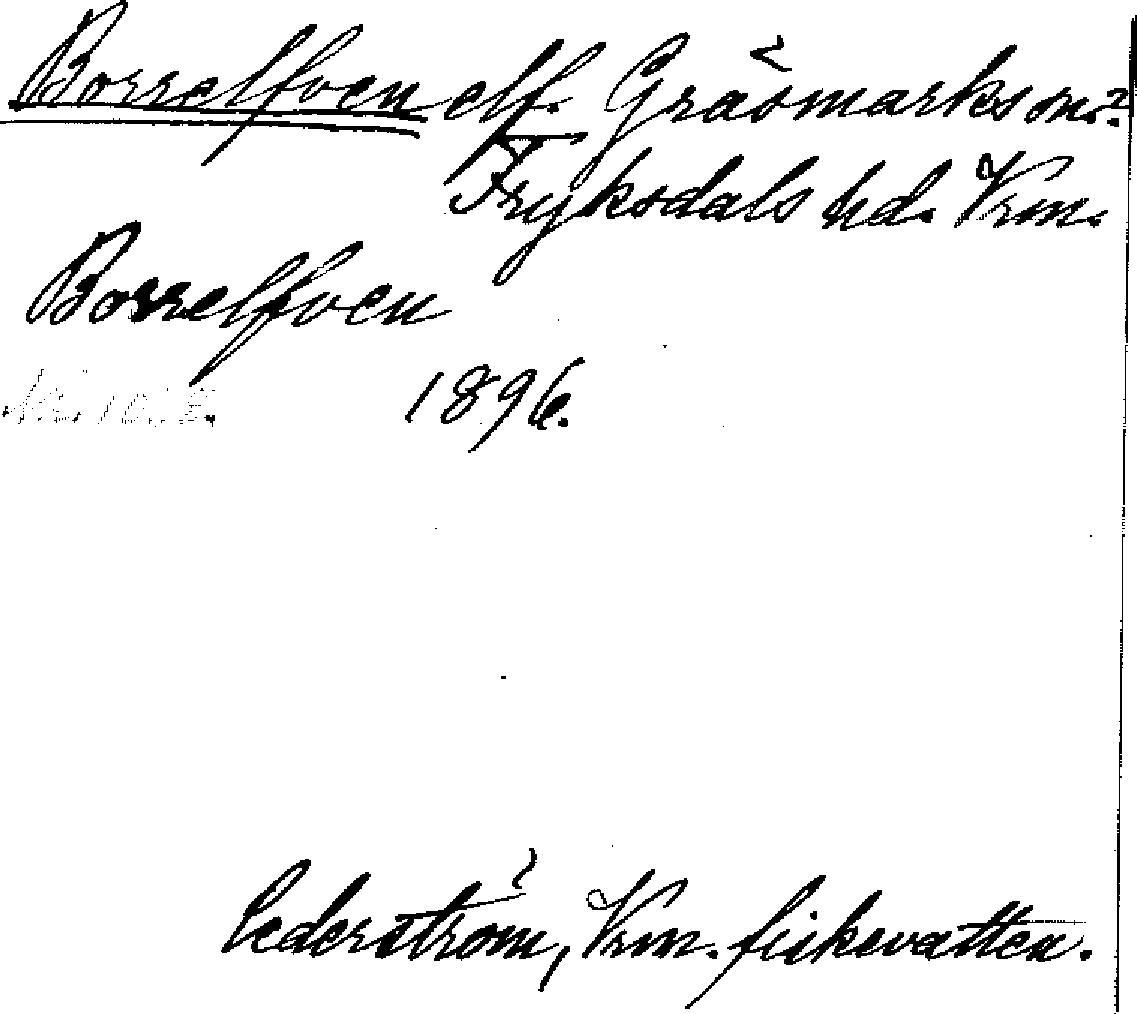 Borrelfven elf. Gräsmarks sn.?
Fryksdals hd. Vrm.
Borrelfven
1896.
Cederström, Vrm. fiskevatten.